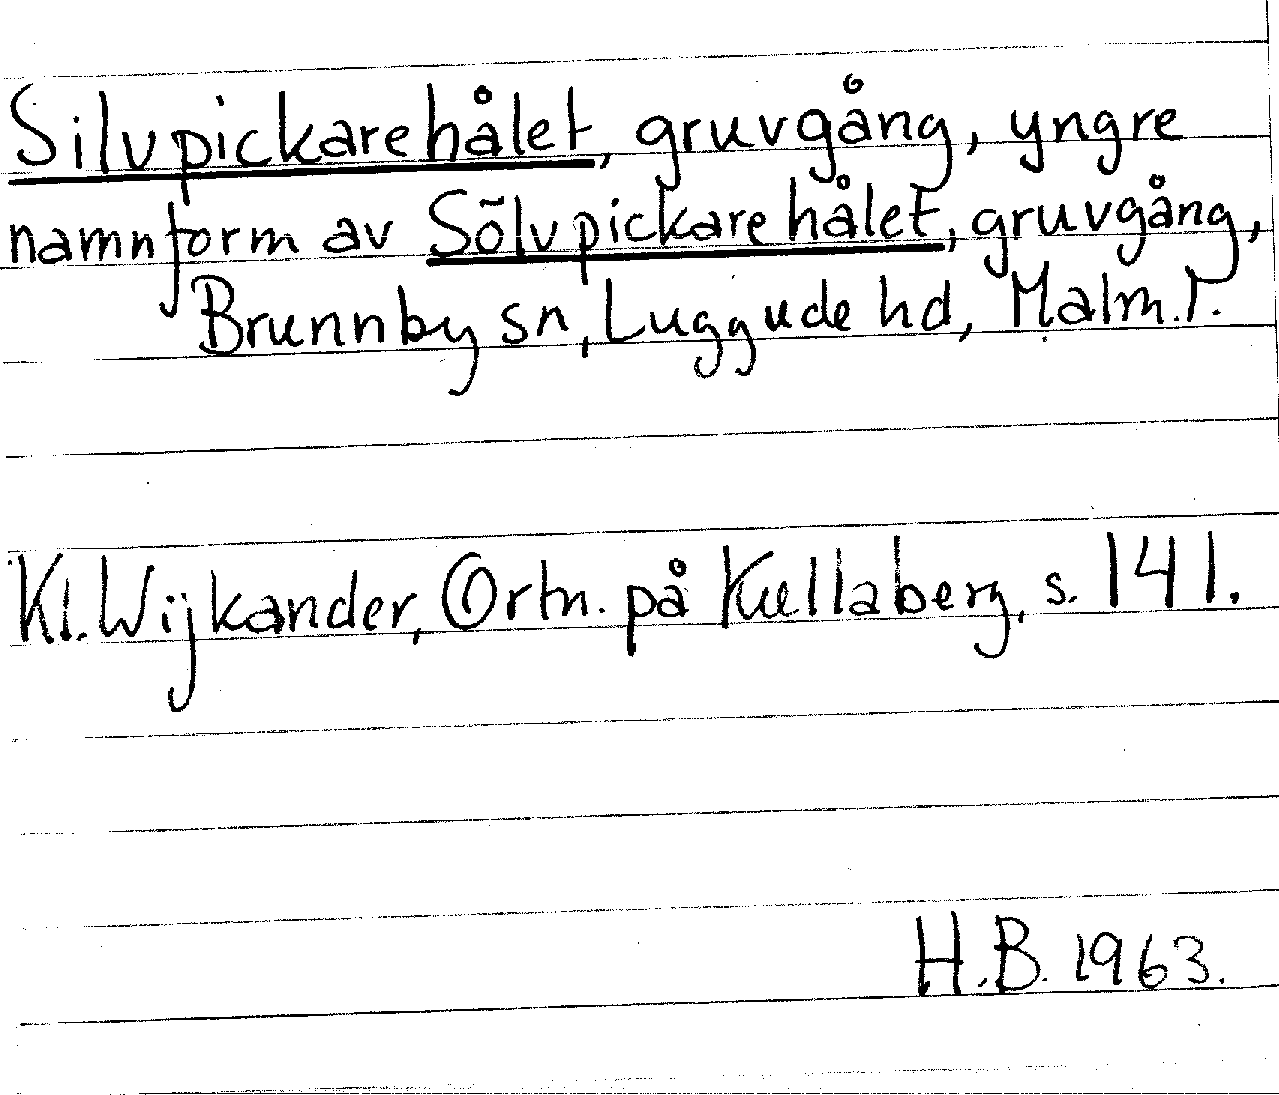 Silvpickarehålet, gruvgång, yngre
namnform av Sölvpickarehålet, gruvgång,
Brunnby sn, Luggude hd, Malm.l.
Kl. Wijkander, Ortn. på Kullaberg, s. 141.
H.B. 1963.